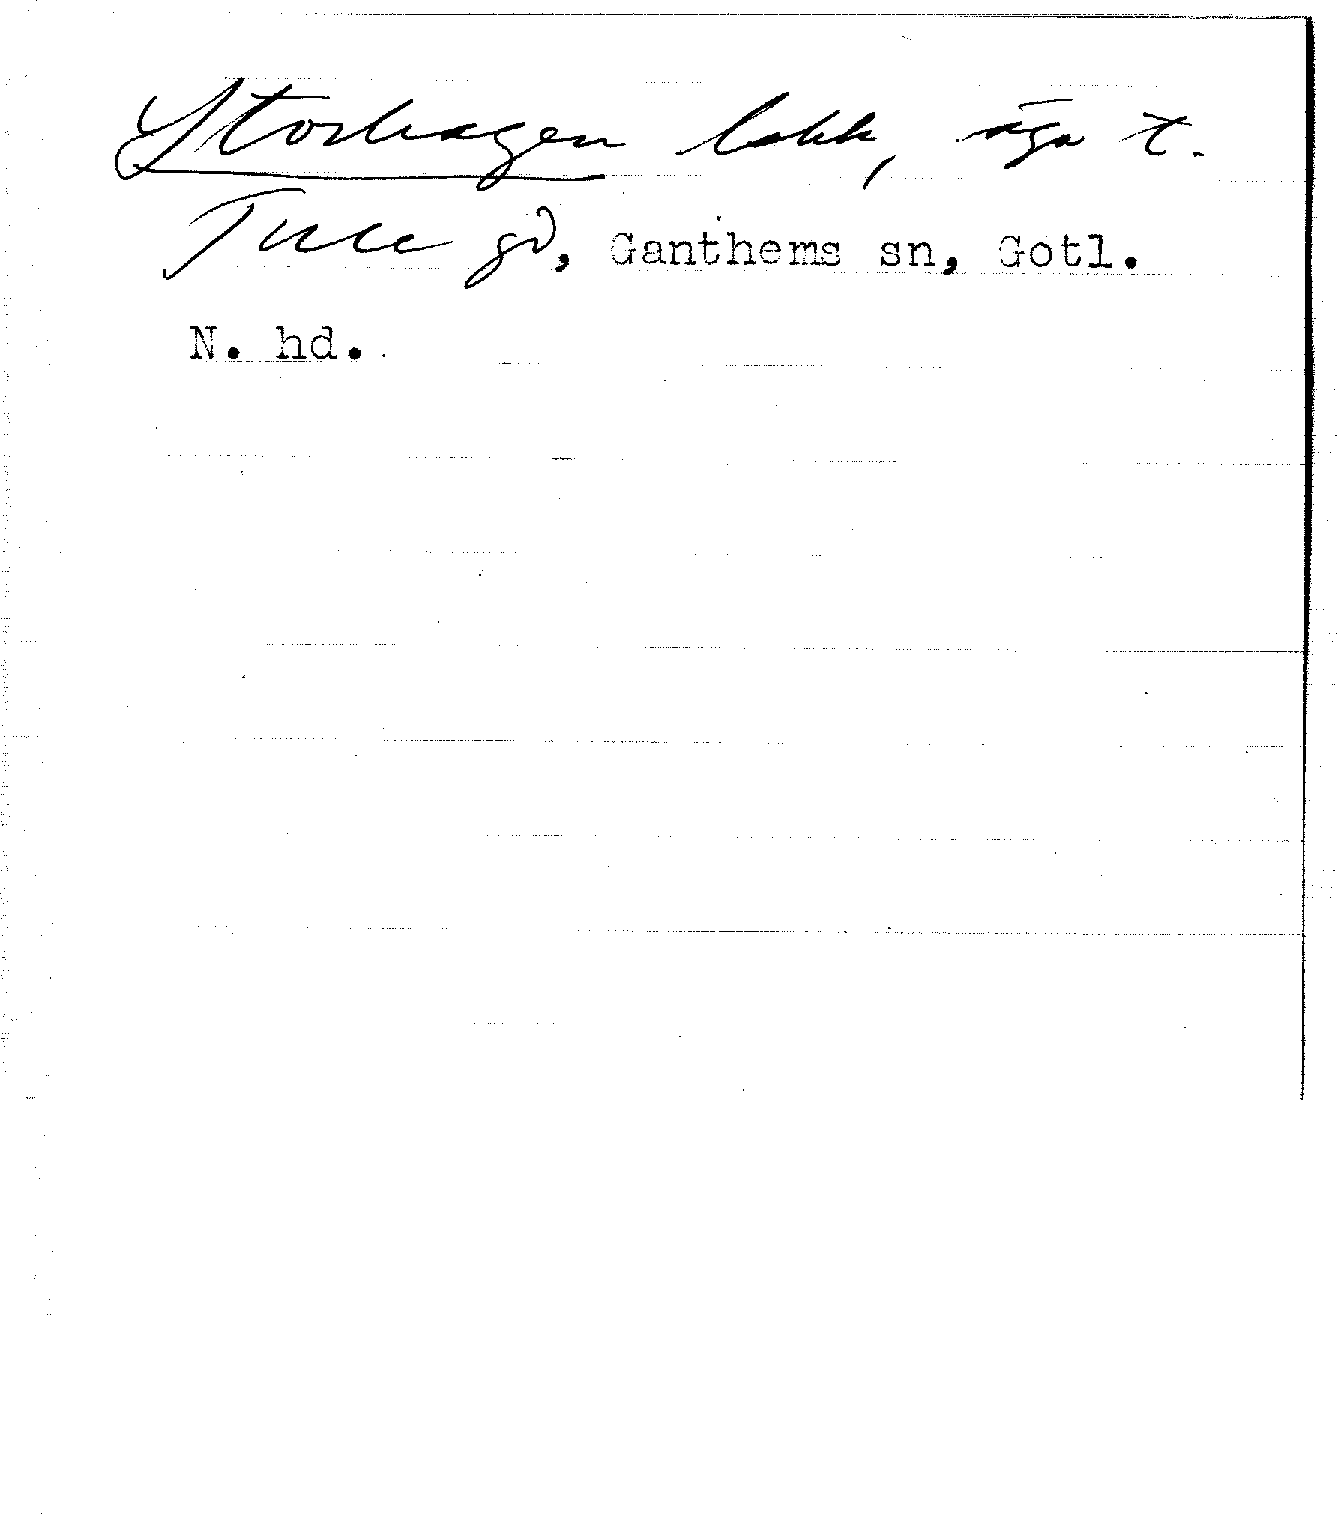 Storhagen lokk, äga t.
Tule gd, Ganthems sn, Gotl.
N. hd.